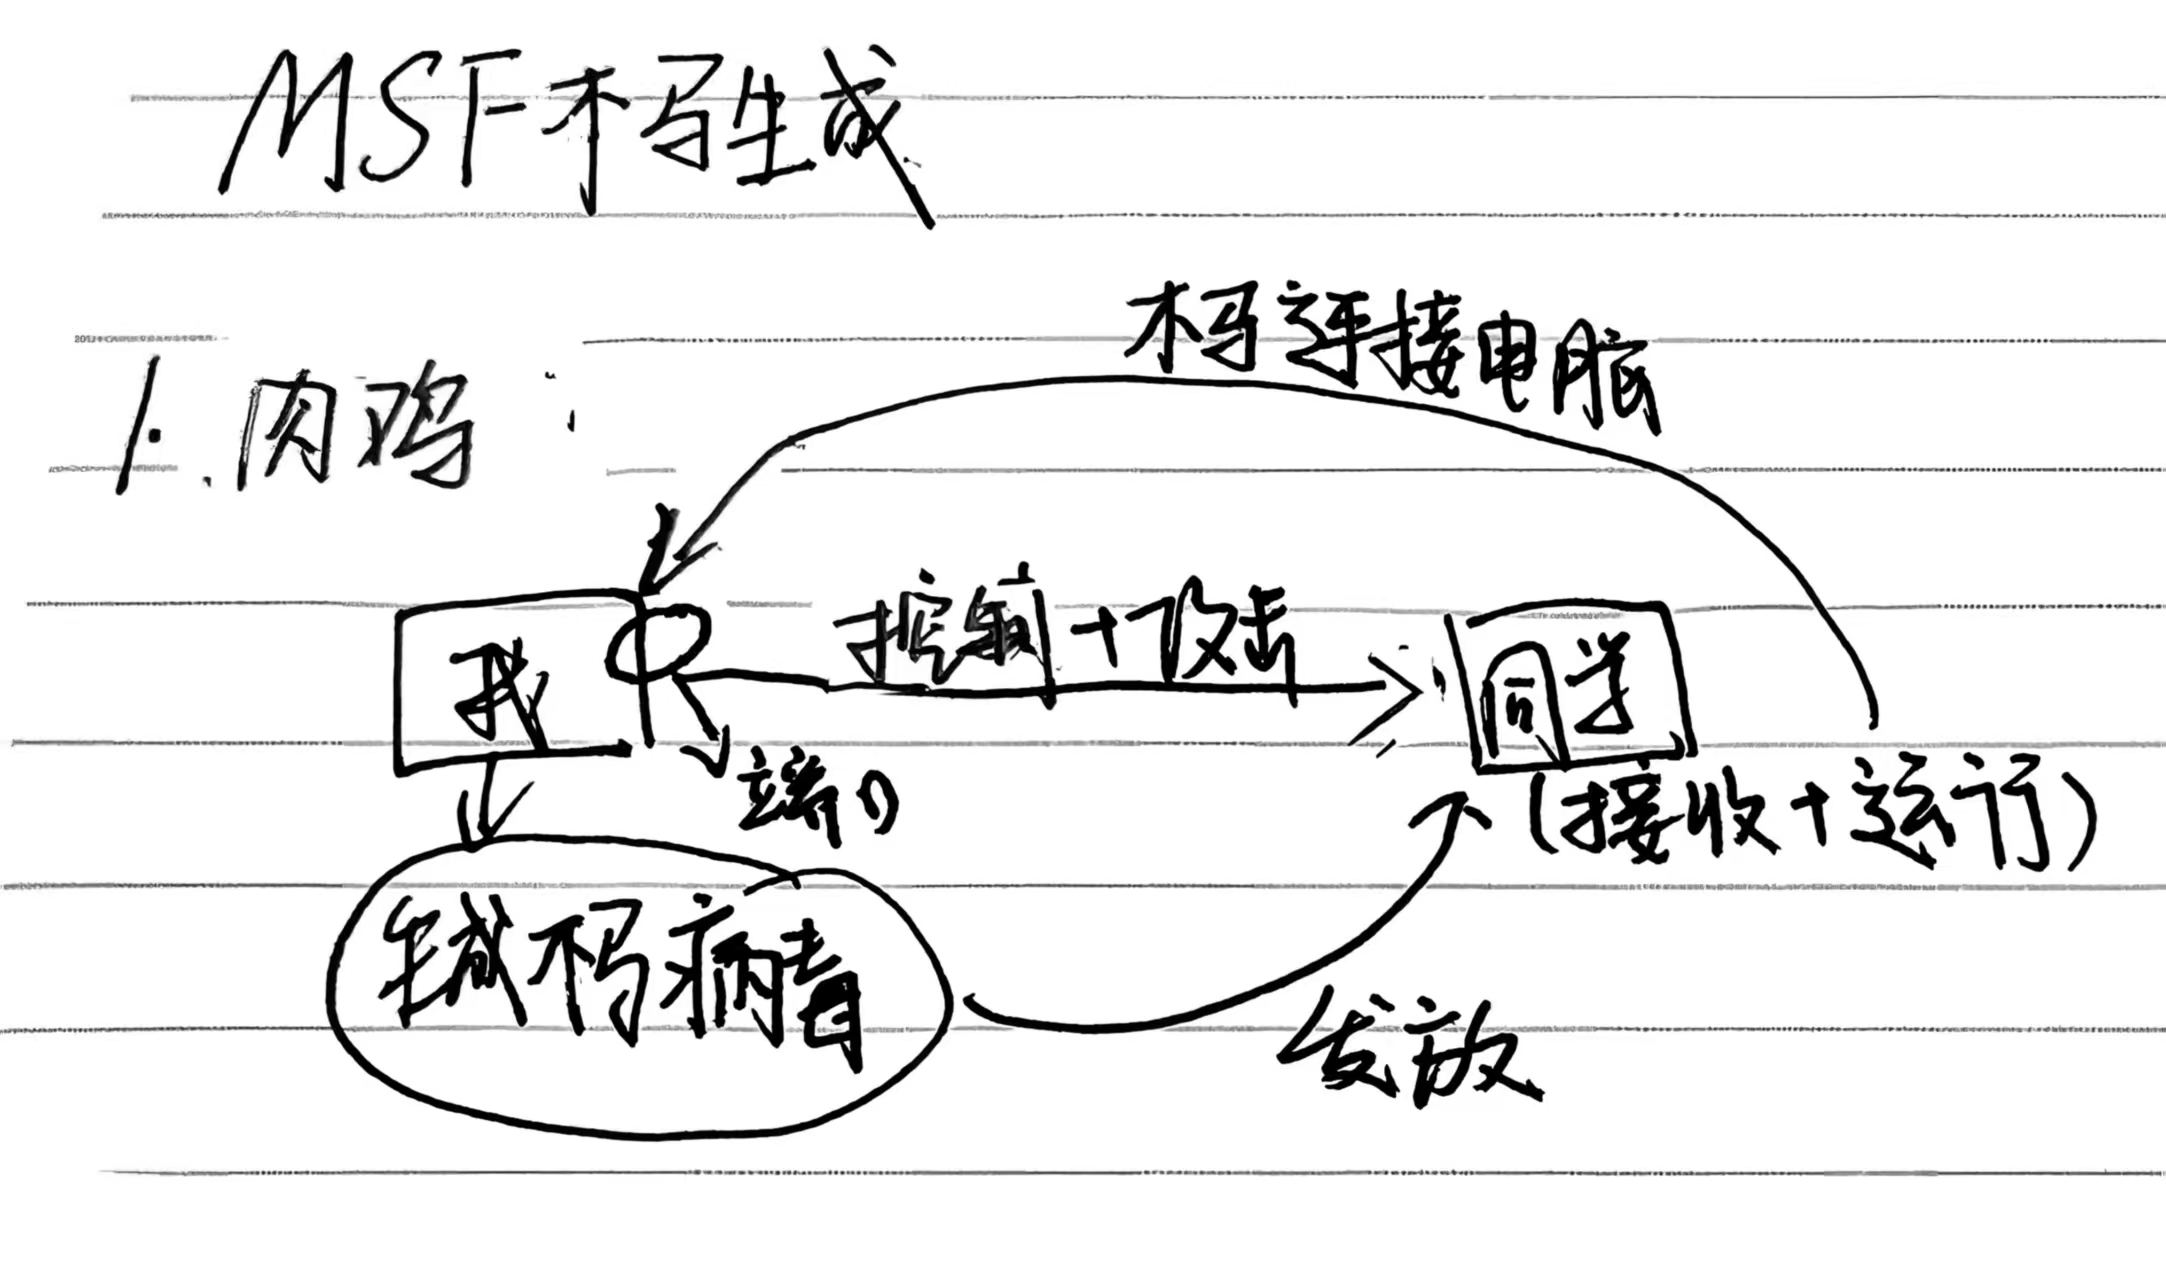 MSF木马生成
1.肉鸡:
木马连接电脑
我
控制+攻击
同学
端口
(接收+运行)
生成木马病毒
发放